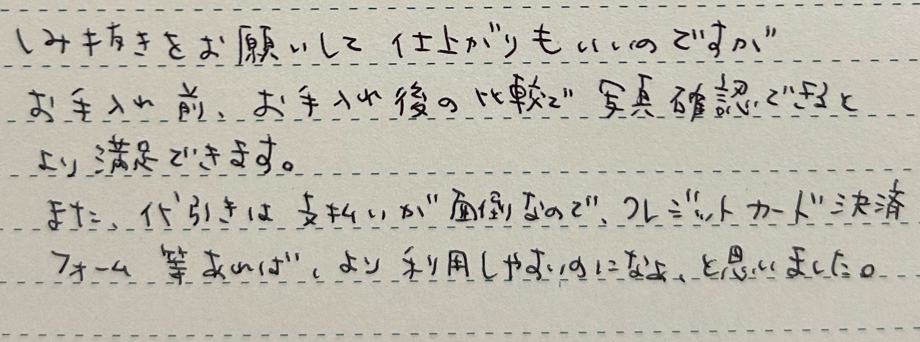 しみ抜きをお願いして 仕上がりもいいのですが
お手入れ前、お手入れ後の比較で 写真確認できると
より満足できます。
また、代引きは支払いが面倒なので、クレジットカード決済
フォーム 等あれば、より利用しやすいのになぁ、と思いました。